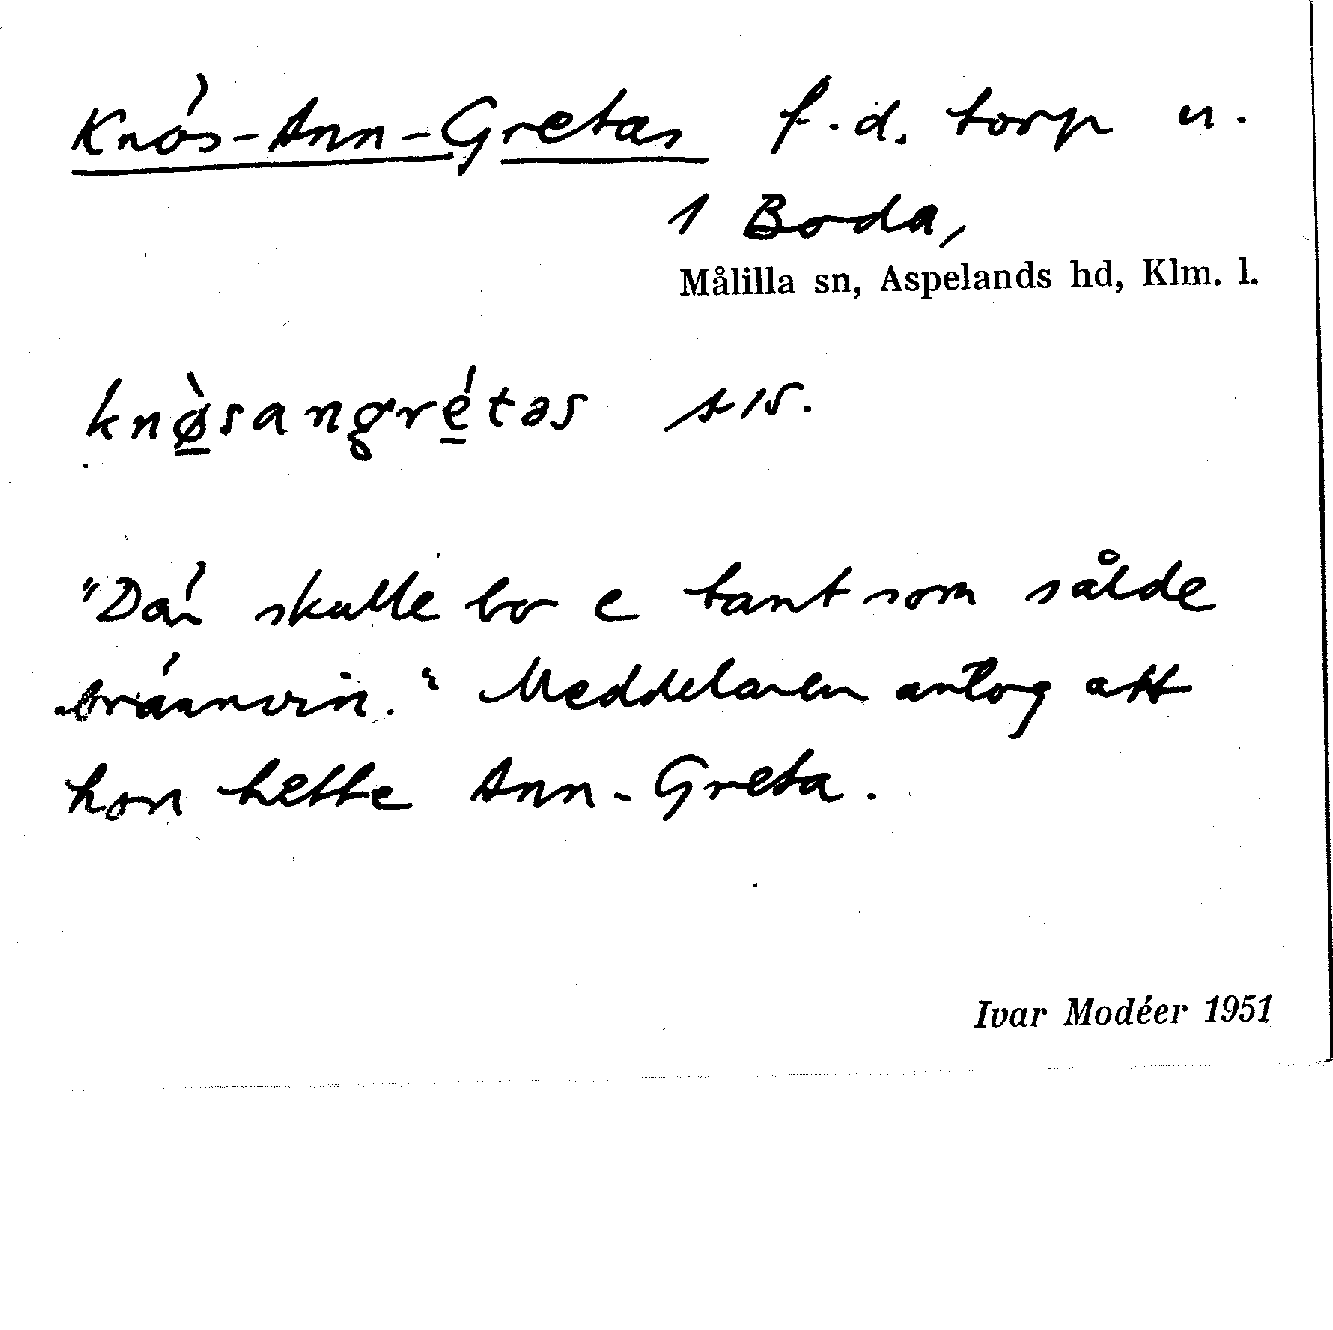 Knös-Ann-Gretas f.d. torp u.
1 Boda,
Målilla sn, Aspelands hd, Klm. l.
knø̀sangrétas A 15.
"Där skulle bo e tant som sålde
brännvin." Meddelaren antog att
hon hette Ann-Greta.
Ivar Modéer 1951